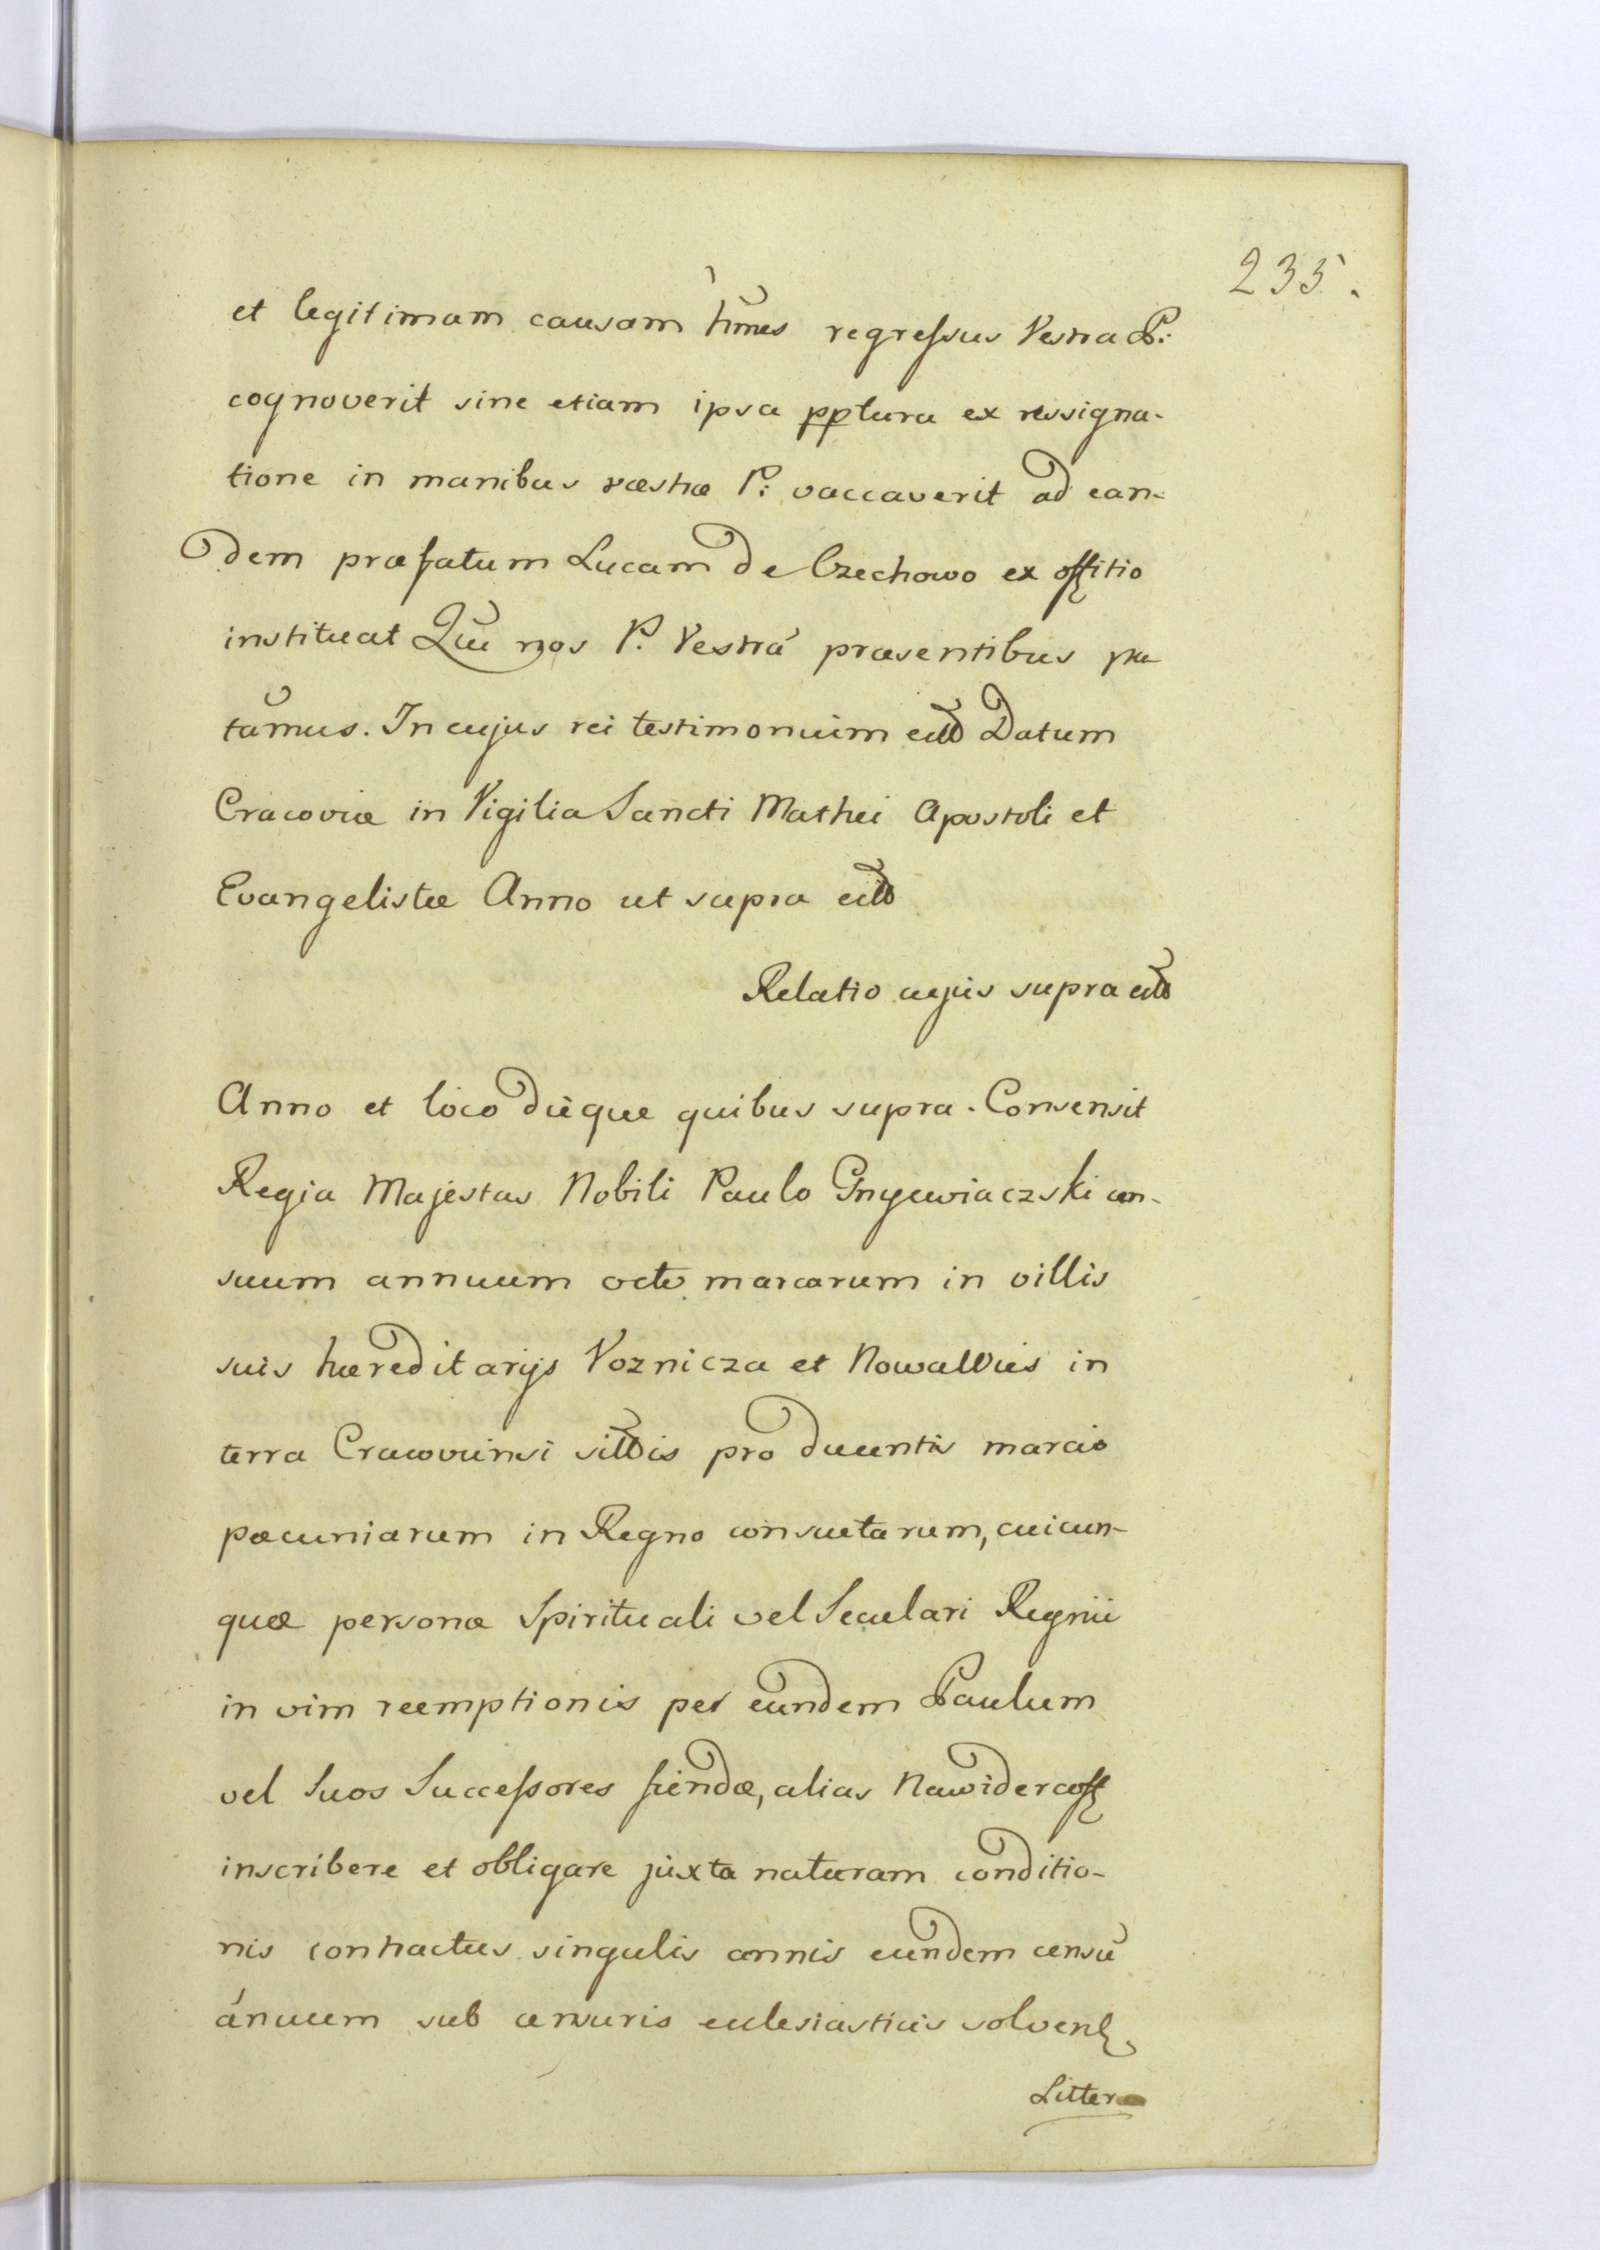 235.
et legitimam causam hmūs regressus Vestra P:
cognoverit sine etiam ipsa pptura ex ressigna-
tione in manibus væstræ P: vaccaverit ad ean-
dem præfatum Lucam de Czechowo ex offitio
instituat Qui nos P. Vestrá præsentibus
tāmus. In cujus rei testimonium Datum
Cracoviæ in Vigilia Sancti Mathei Apostoli et
Evangelistæ Anno ut supra
Relatio cujus supra
Anno et loco dieque quibus supra. Consensit
Regia Majestas Nobili Paulo Gnyewiaczski cen-
suum annuum octo marcarum in villis
suis hæreditarijs Voznicza et Nowallvies in
terra Cracoviensi pro ducentis marcis
pæcuniarum in Regno consuetarum, cuicun-
quæ personæ Spirituali vel Seculari Regnii
in vim reemptionis per eundem Paulum
vel Suos Successores fiendæ, alias Nawidercoff
inscribere et obligare juxta naturam conditio-
nis contractus singulis annis eundem censū
ánuum sub censuris ecclesiasticis solvend
Litteræ